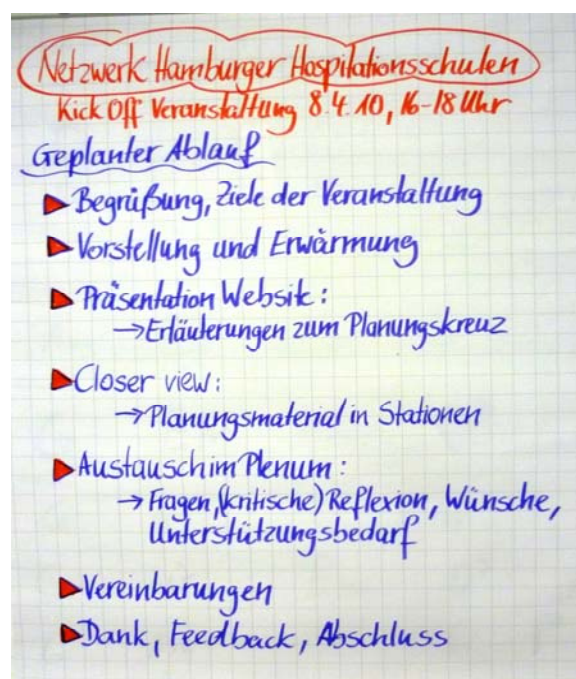 Netzwerk Hamburger Hospitationsschulen
Kick Off Veranstaltung 8.4.10, 16-18 Uhr
Geplanter Ablauf
Begrüßung, Ziele der Veranstaltung
Vorstellung und Erwärmung
Präsentation Website:
→Erläuterungen zum Planungskreuz
Closer view:
→Planungsmaterial in Stationen
Austausch im Plenum:
→ Fragen, (kritische) Reflexion, Wünsche,
Unterstützungsbedarf
Vereinbarungen
Dank, Feedback, Abschluss